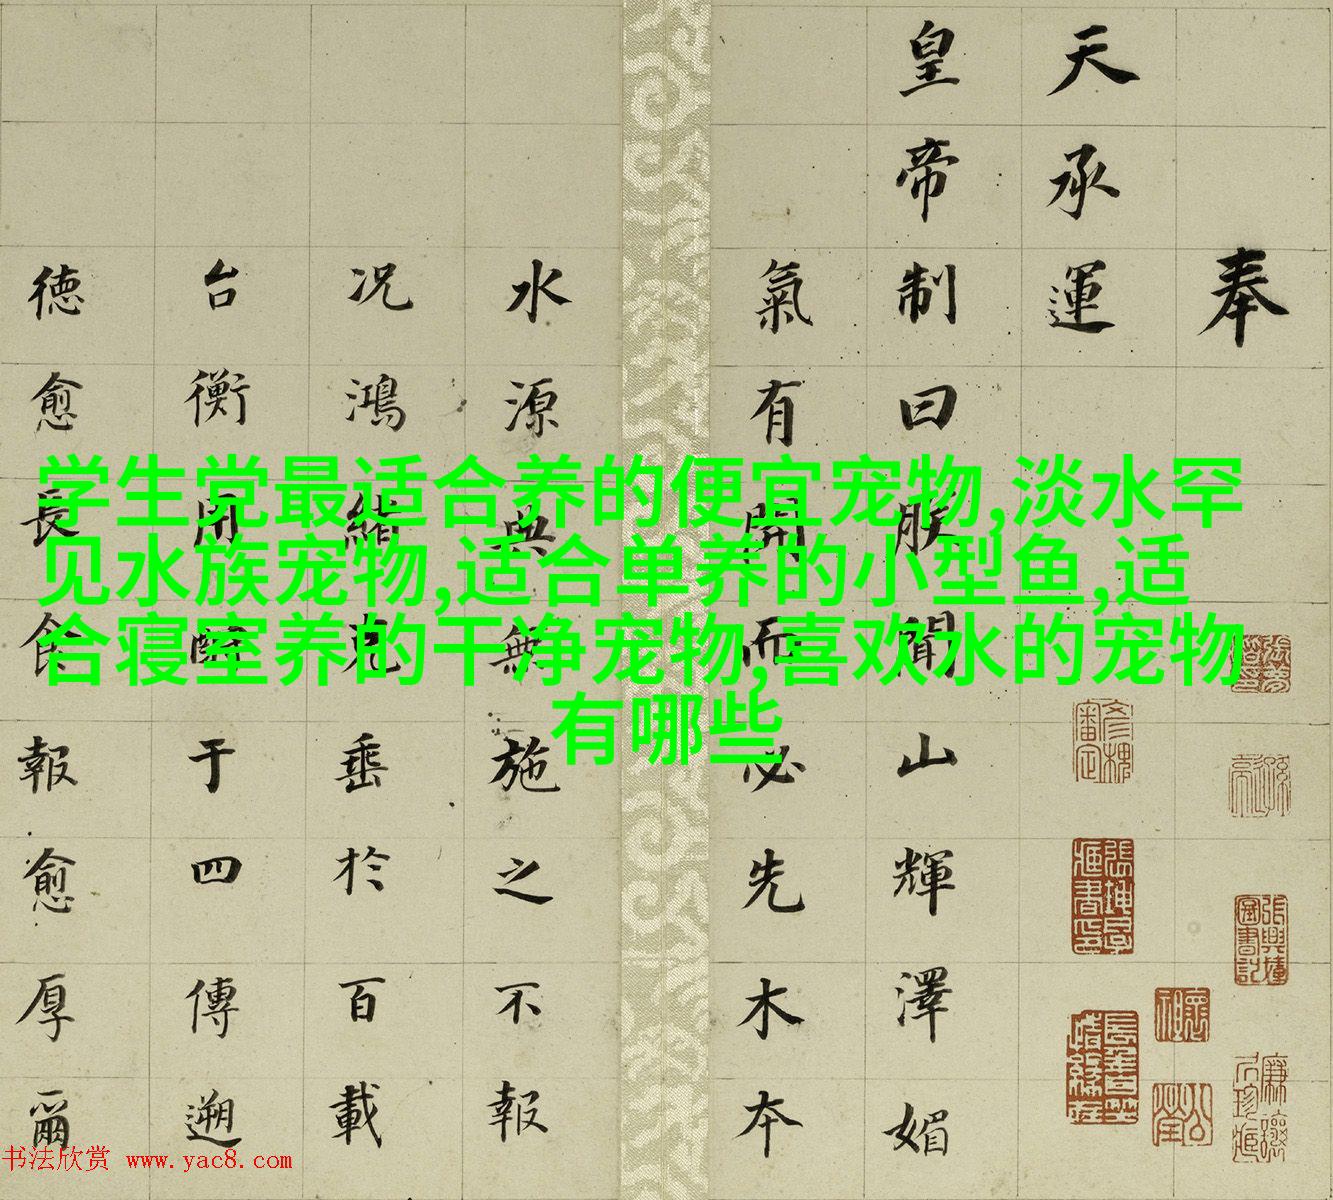 奉
天承運
皇帝制曰朕聞山輝澤媚
氣有開而必先木本
水源典無施之不報
况鴻緒克垂於百載
台衡用于四傳遡
德愈長食報愈厚爾
学生党最适合养的便宜宠物,淡水罕
见水族宠物,适合单养的小型鱼,适
合寝室养的干净宠物,喜欢水的宠物
有哪些
书法欣赏 www.yac8.com